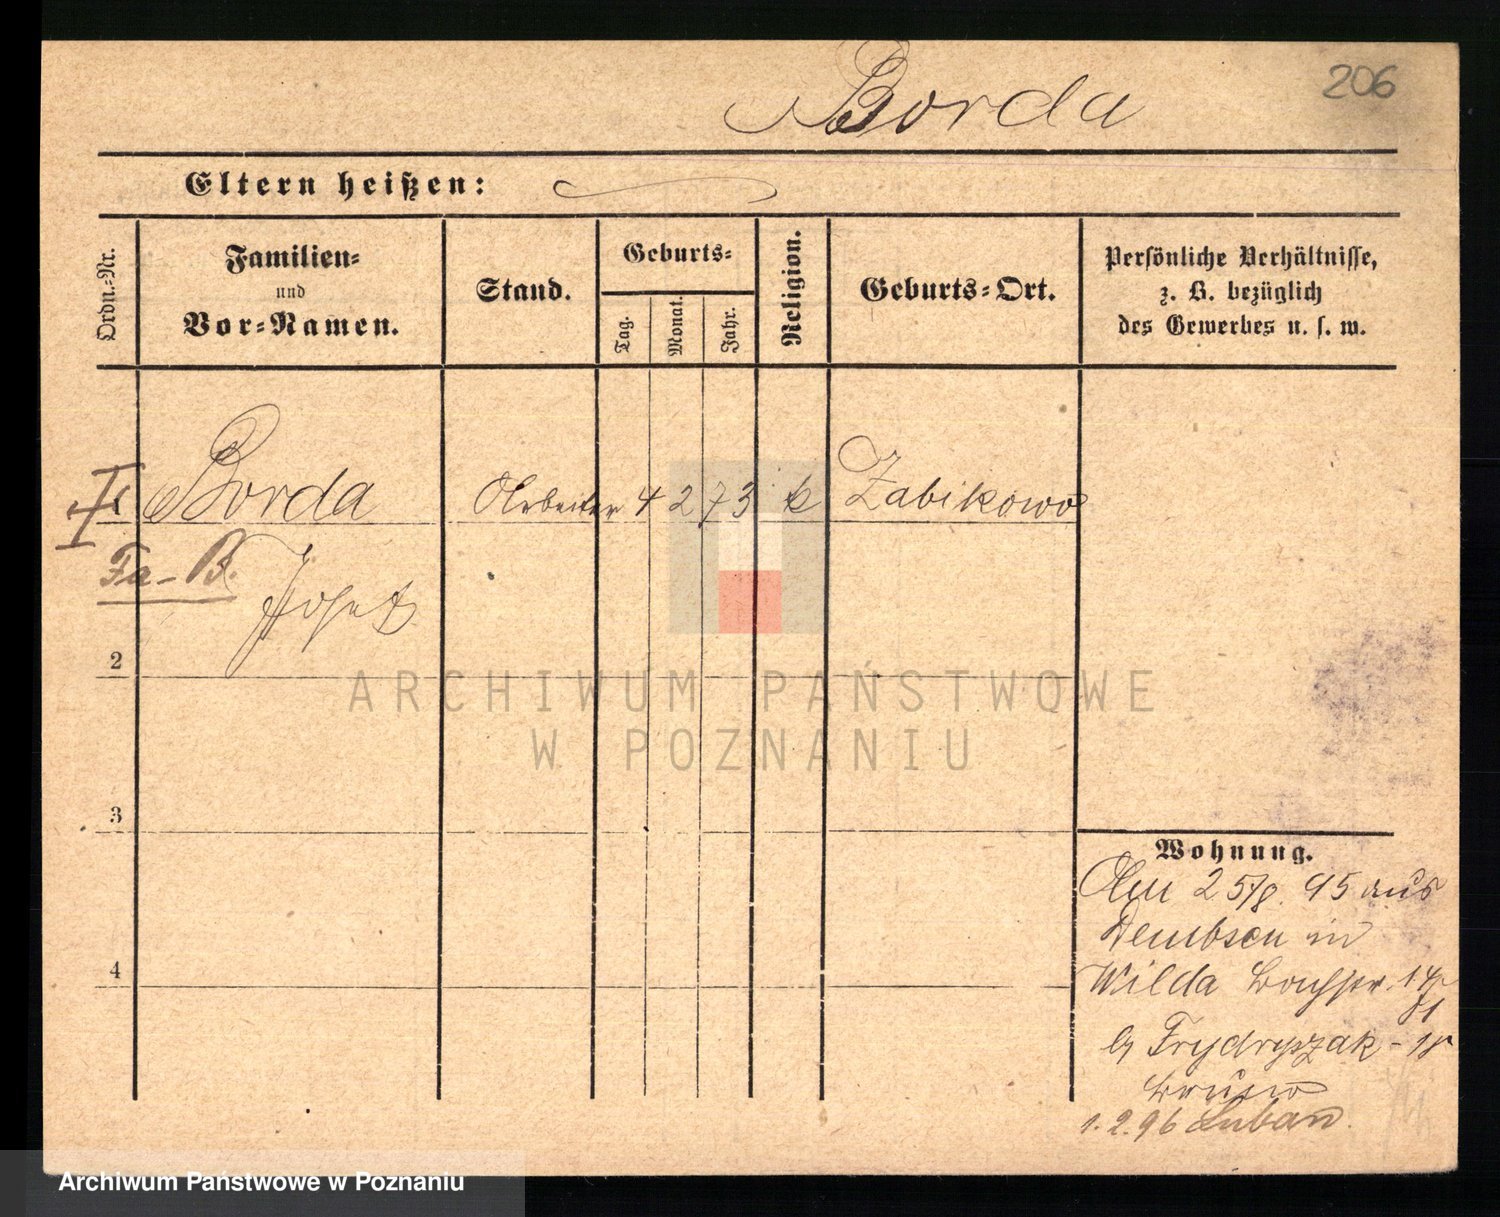 206
Borda
Eltern heißen:
Ordn.-Nr.
Familien-
und
Vor-Namen.
Stand.
Geburts-
Tag.
Monat.
Jahr.
Religion.
Geburts-Ort.
Persönliche Verhältnisse,
z. B. bezüglich
des Gewerbes u. s. w.
Borda Arbeiter 4 2 73 k Zabikowo
Fa- B.
Josef
2
3
4
ARCHIWUM PAŃSTWOWE
W POZNANIU
Wohnung.
Am 25/8. 95 aus
Dembsen in
Wilda
Frydryszak
1.2.96 Luban.
Archiwum Państwowe w Poznaniu